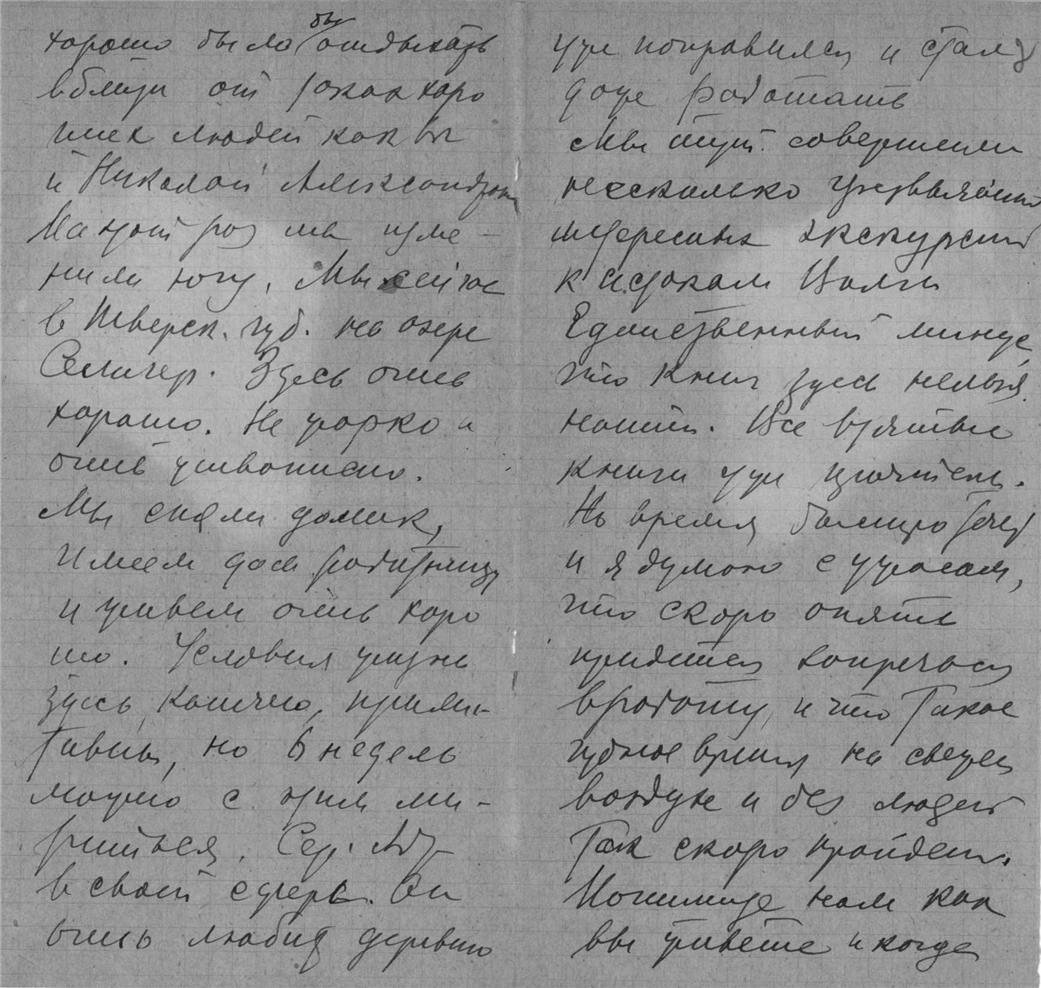 хорошо было бы отдыхать
вблизи от таких хоро
ших людей как вы
и Николай Александров
На этот раз мы изме-
нили югу. Мы сейчас
в Тверск. губ. на озере
Селигер. Здесь очень
хорошо. Не жарко и
очень живописно.
Мы сняли домик,
имеем дом работницу
и живем очень хоро
шо. Условия жизни
здесь, конечно, прими-
тивны, но 6 недель
можно с этим ми-
риться. Сер.
в своей сфере. Он
очень любит деревню
уже поправился и стал
даже работать
Мы тут совершили
несколько чрезвычайно
интересных экскурсий
к истокам Волги
Единственный минус,
что книг здесь нельзя
найти. Все взятые
книги уже прочитаны.
Но время быстро течет
и я думаю с ужасом,
что скоро опять
придется запрячься
в работу, и что такое
чудное время на свежем
воздухе и без людей
так скоро пройдет.
Напишите нам как
вы живете и когда